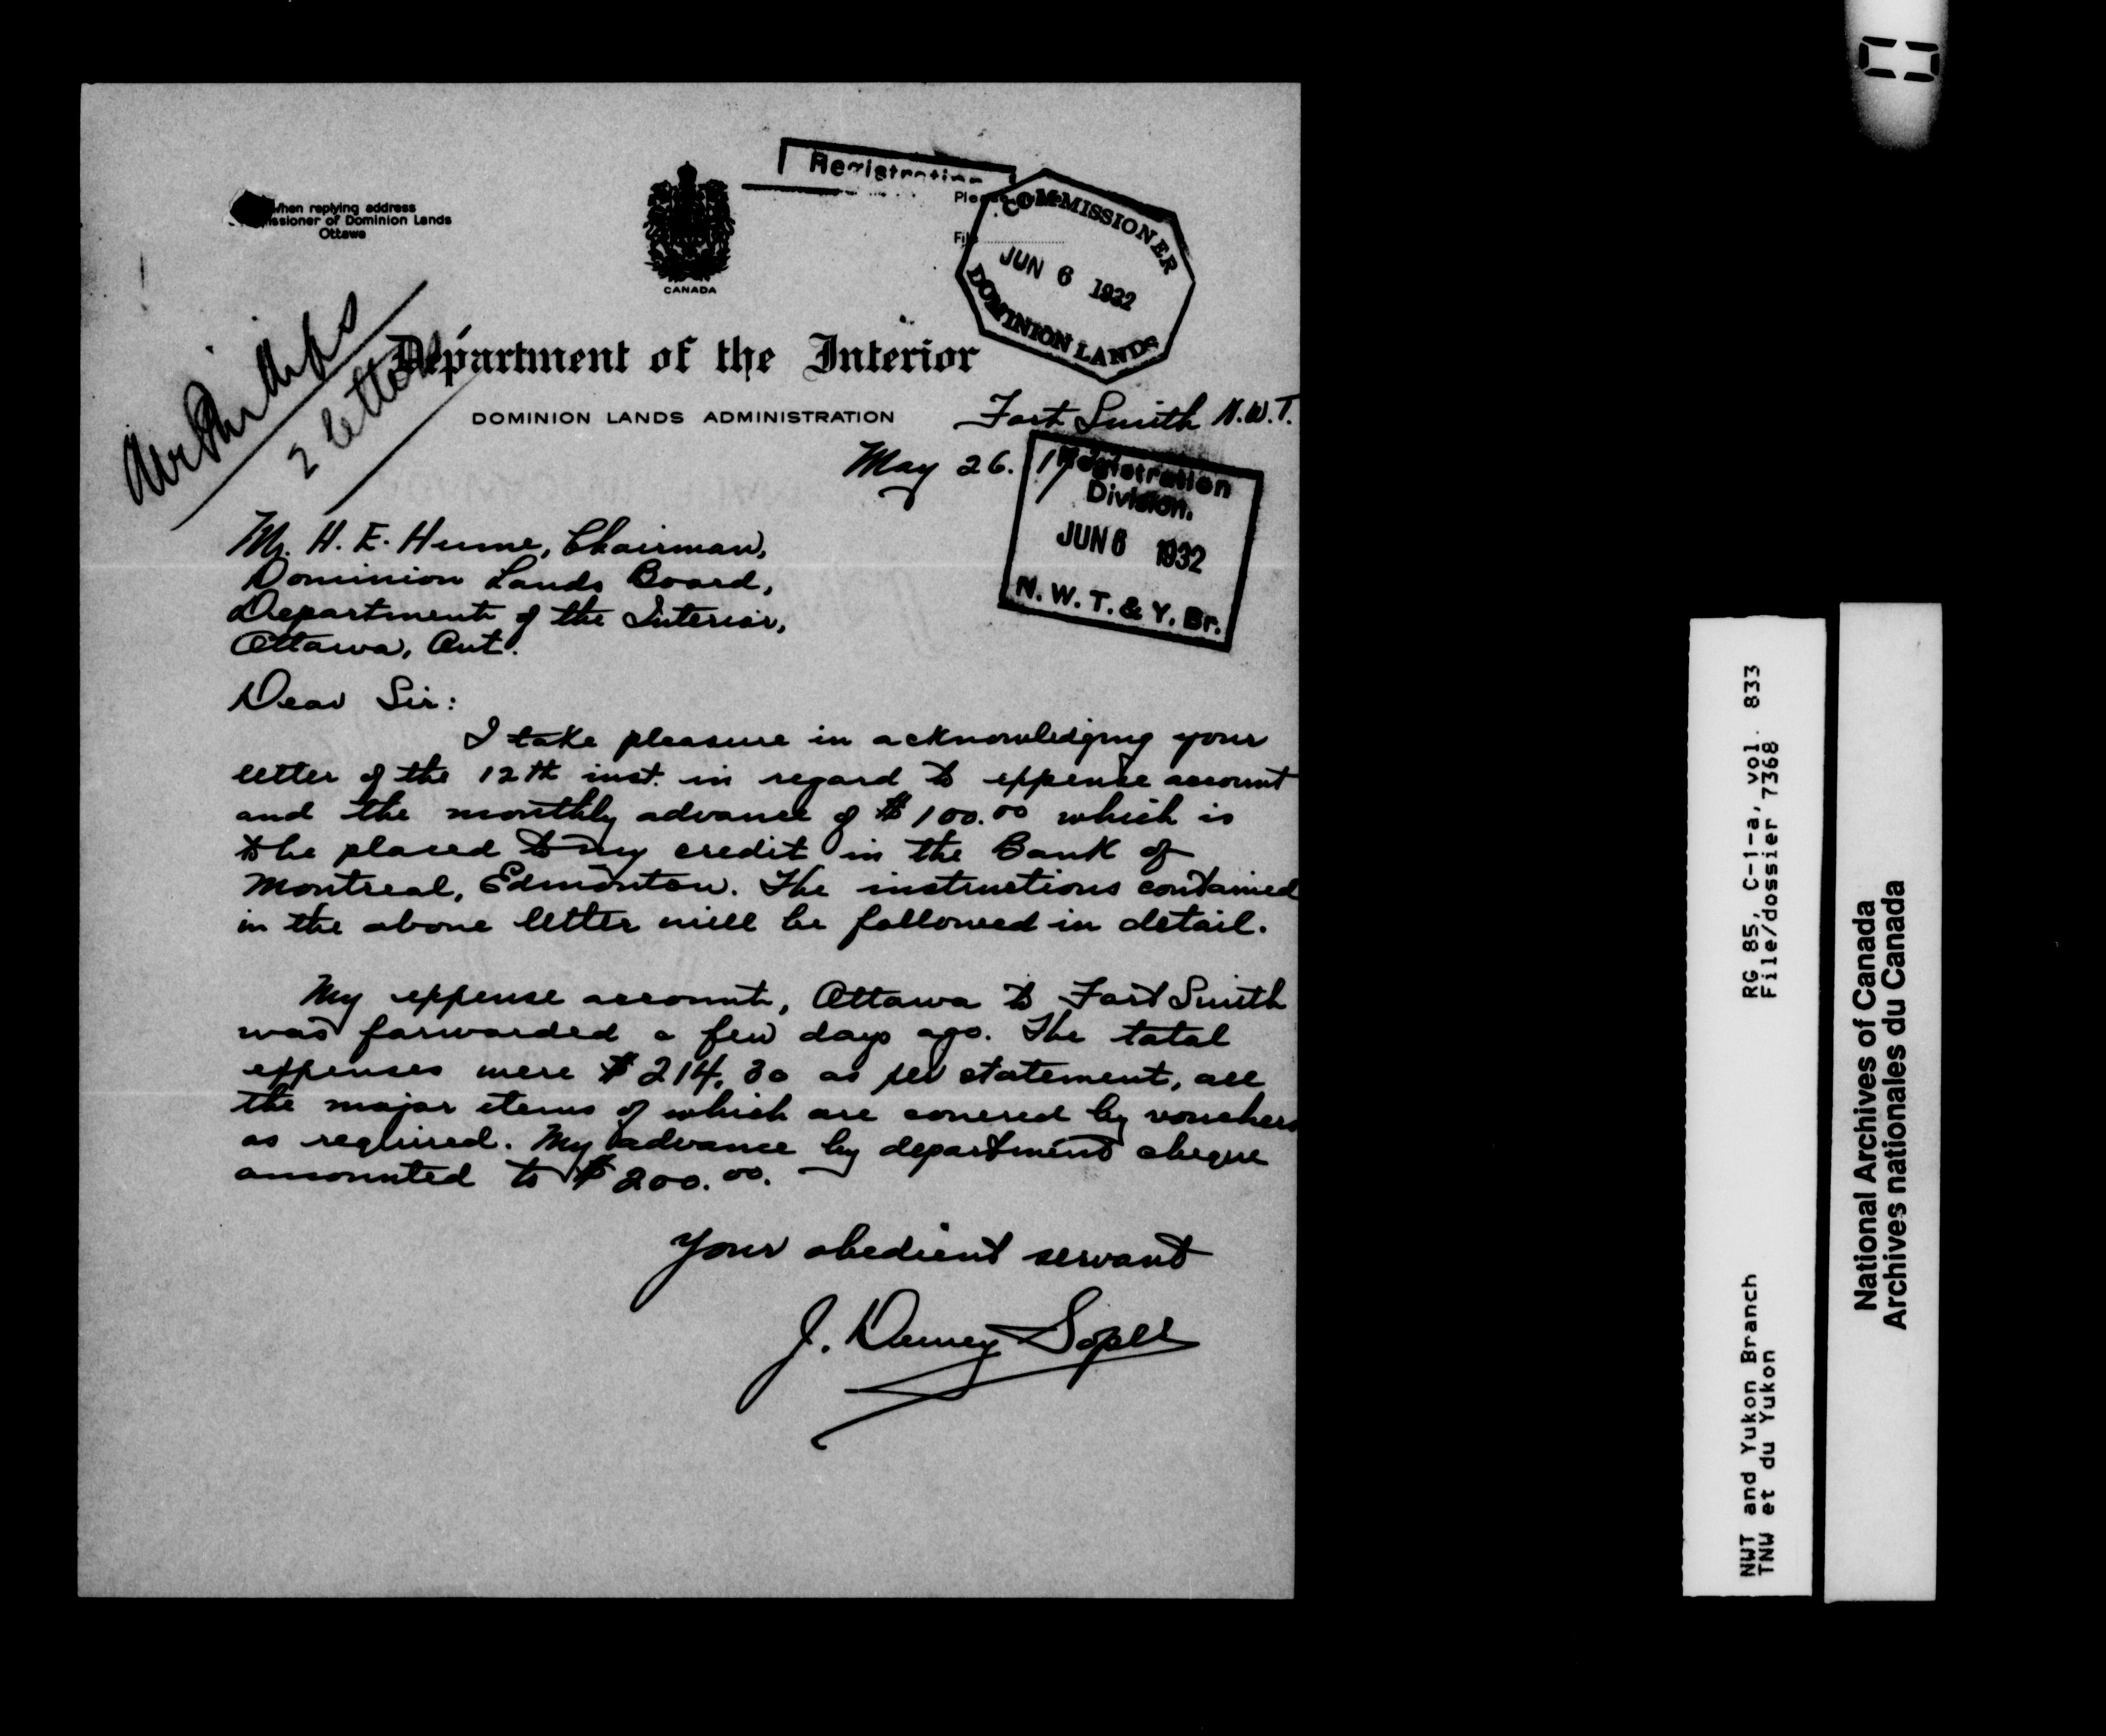 Registration
When replying address
Commissioner of Dominion Lands
Ottawa
CANADA
File
COMMISSIONER
JUN 6 1932
DOMINION LANDS
2 letters
Department of the Interior
DOMINION LANDS ADMINISTRATION
Fort Smith N.W.T.
May 26.
Registration
Division.
JUN 6 1932
N. W. T. & Y. Br.
Mr. H. E. Hume, Chairman,
Dominion Lands Board,
Department of the Interior,
Ottawa, Ont.
Dear Sir:
I take pleasure in acknowledging your
letter of the 12th inst. in regard to expense account
and the monthly advance of $100.00 which is
to be placed to my credit in the Bank of
Montreal, Edmonton. The instructions contained
in the above letter will be followed in detail.
My expense account, Ottawa to Fort Smith
was forwarded a few days ago. The total
expenses were $214.30 as per statement, all
the major items of which are covered by vouchers
as required. My advance by department cheque
amounted to $200.00.
Your obedient servant
J. Dewey Soper
RG 85, C-1-a, vol. 833
File/dossier 7368
NWT and Yukon Branch
TNW et du Yukon
National Archives of Canada
Archives nationales du Canada